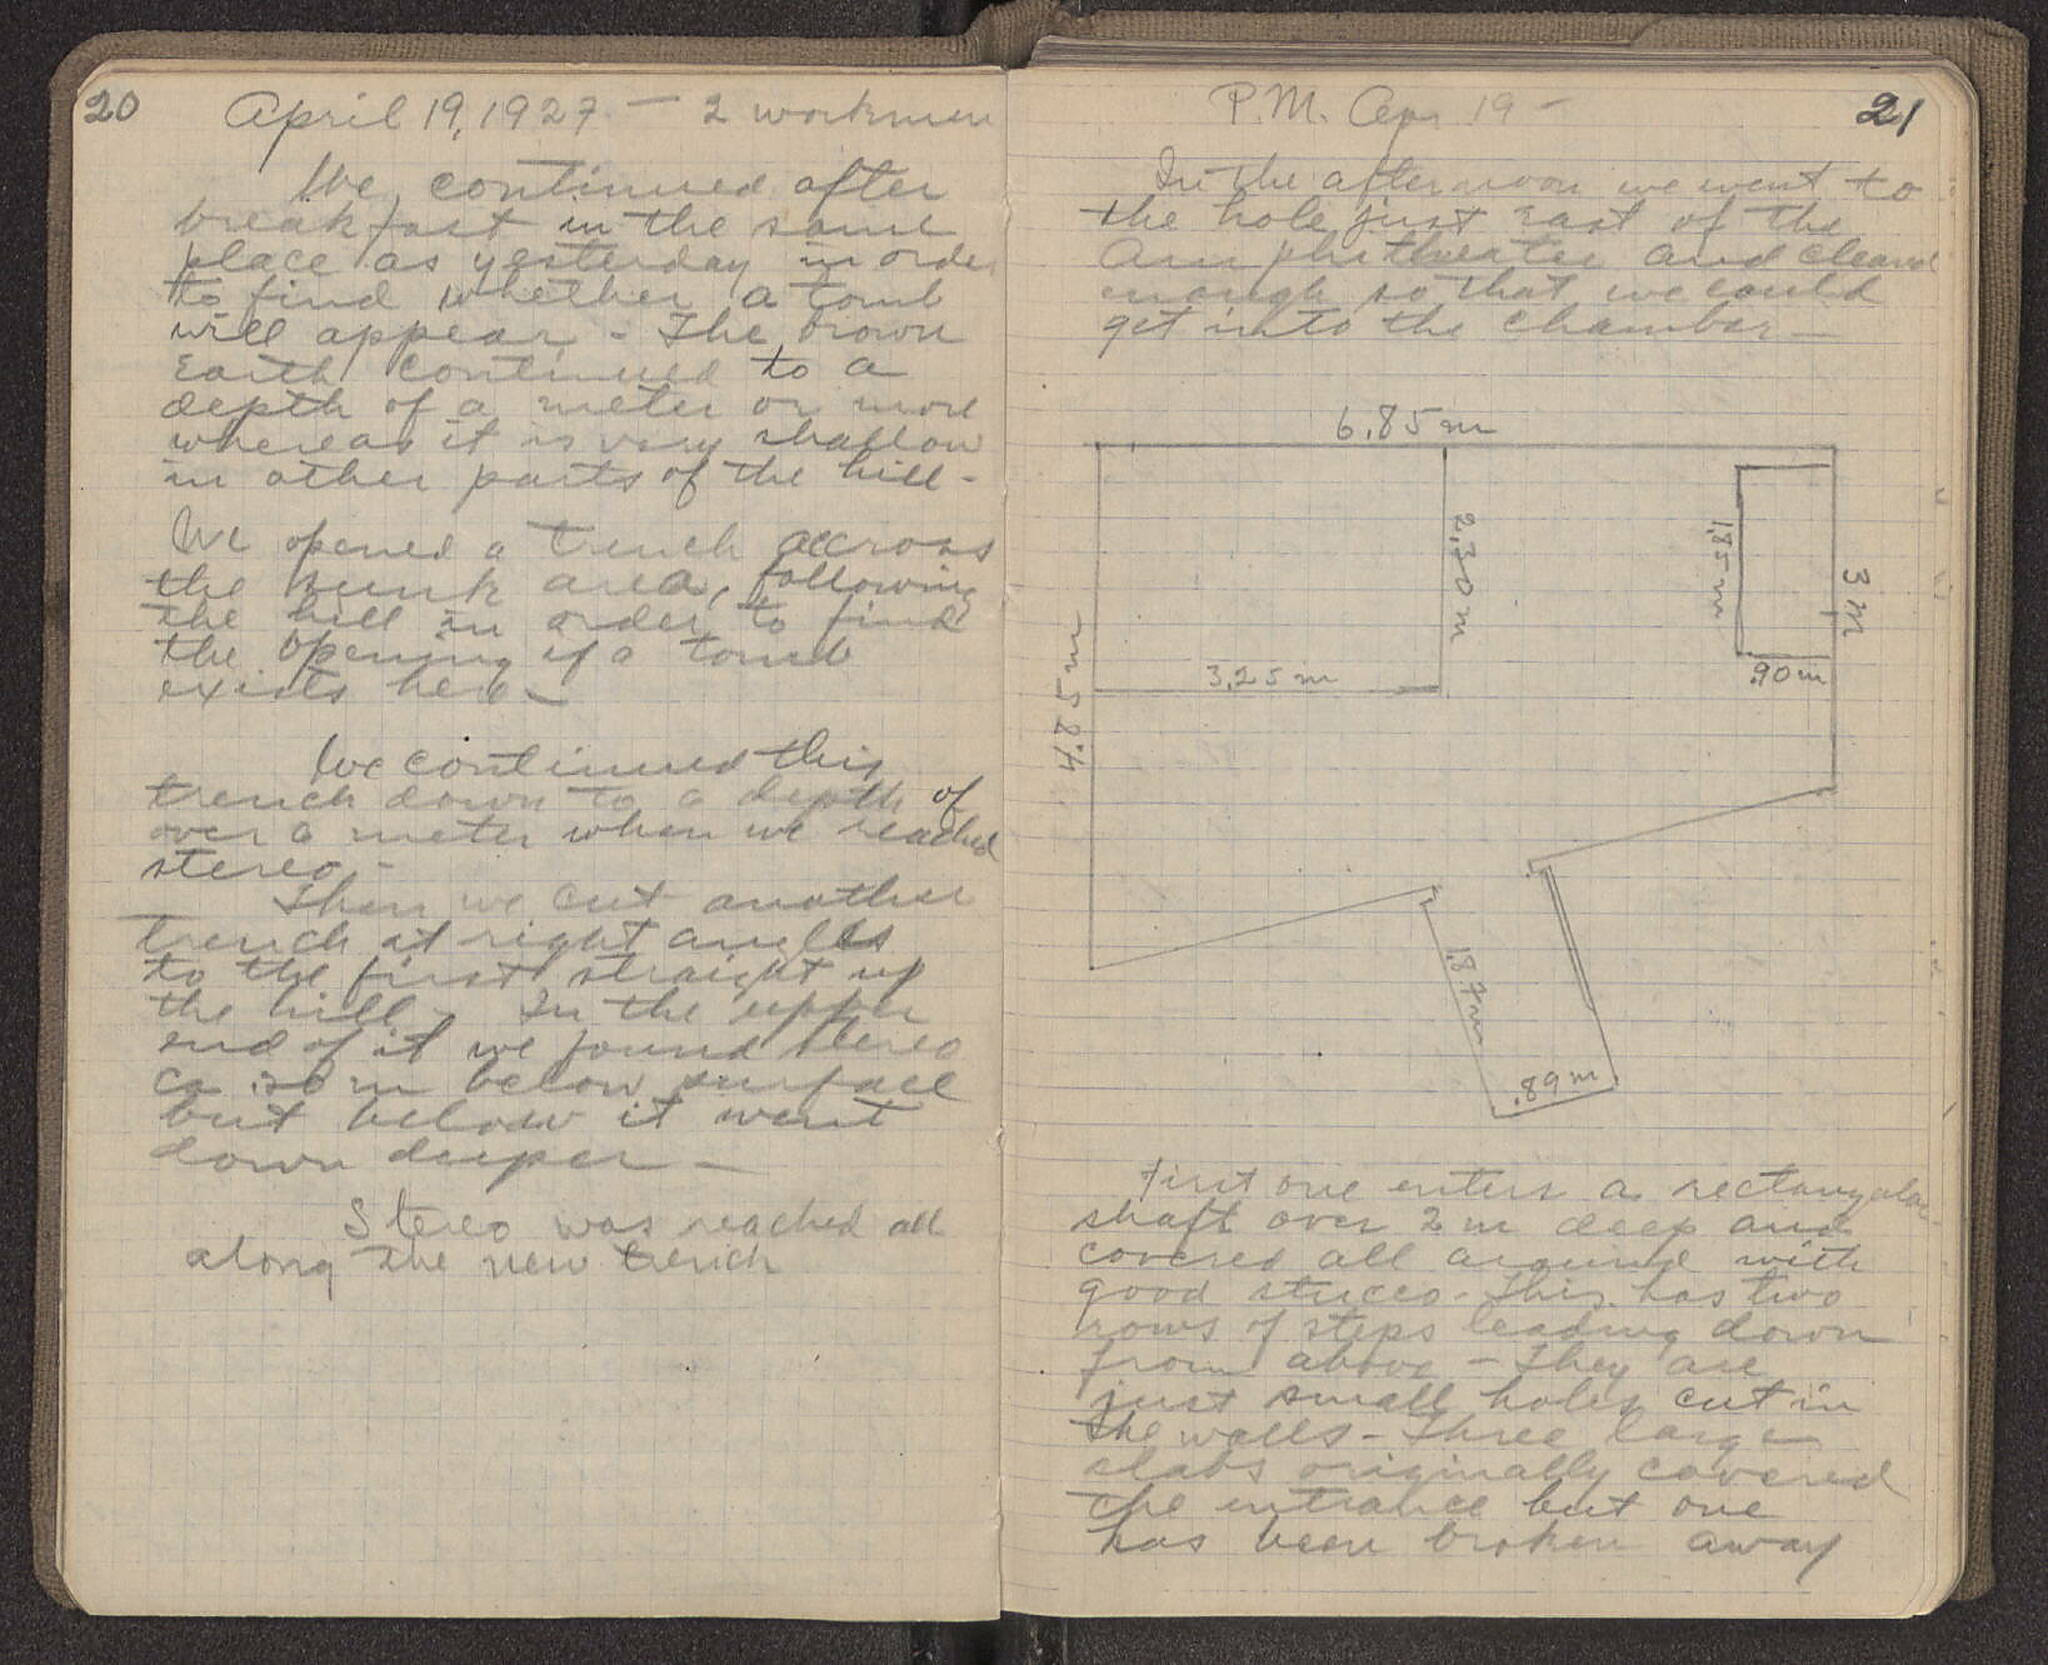 20 April 19, 1927 - 2 workmen
We continued after
breakfast in the same
place as yesterday in order
to find whether a tomb
will appear - The brown
earth continued to a
depth of a meter or more
whereas it is very shallow
in other parts of the hill -
We opened a trench accross
the sunk area, following
the hill in order to find
the opening if a tomb
exists here -
We continued this
trench down to a depth of
over a meter when we reached
stereo -
Then we cut another
trench at right angles
to the first straight up
the hill - In the upper
end of it we found stereo
ca .30 m below surface
but below it went
down deeper -
Stereo was reached all
along the new trench
P.M. Apr 19 - 21
In the afternoon we went to
the hole just east of the
Amphitheater and cleared
enough so that we could
get into the chamber -
6.85 m
2.30 m
1.85 m
3 m
.90 m
3.25 m
4.85 m
1.87 m
.89 m
First one enters a rectangular
shaft over 2 m deep and
covered all around with
good stucco - This has two
rows of steps leading down
from above - They are
just small holes cut in
the walls - Three large
slabs originally covered
the entrance but one
has been broken away